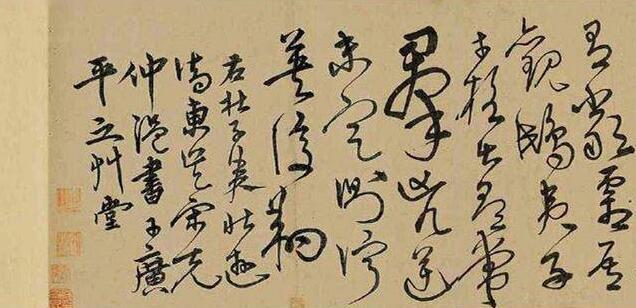 有嚴霜吾
觀鴟夷子
才格出尋常
羣凶逆
未定側佇
英俊翔
右杜子美壯遊
詩東吳宋克
仲温書于廣
平之艸堂